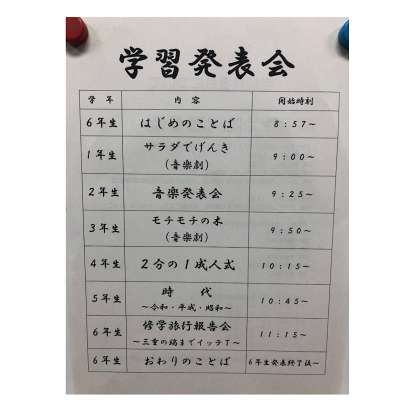 学習発表会
学年 内容 開始時刻
6年生 はじめのことば 8:57～
1年生 サラダでげんき (音楽劇) 9:00～
2年生 音楽発表会 9:25～
3年生 モチモチの木 (音楽劇) 9:50～
4年生 2分の1成人式 10:15～
5年生 時代 ～令和・平成・昭和～ 10:45～
6年生 修学旅行報告会 ～三重の端までイッテT～ 11:15～
6年生 おわりのことば 6年生発表終了後～